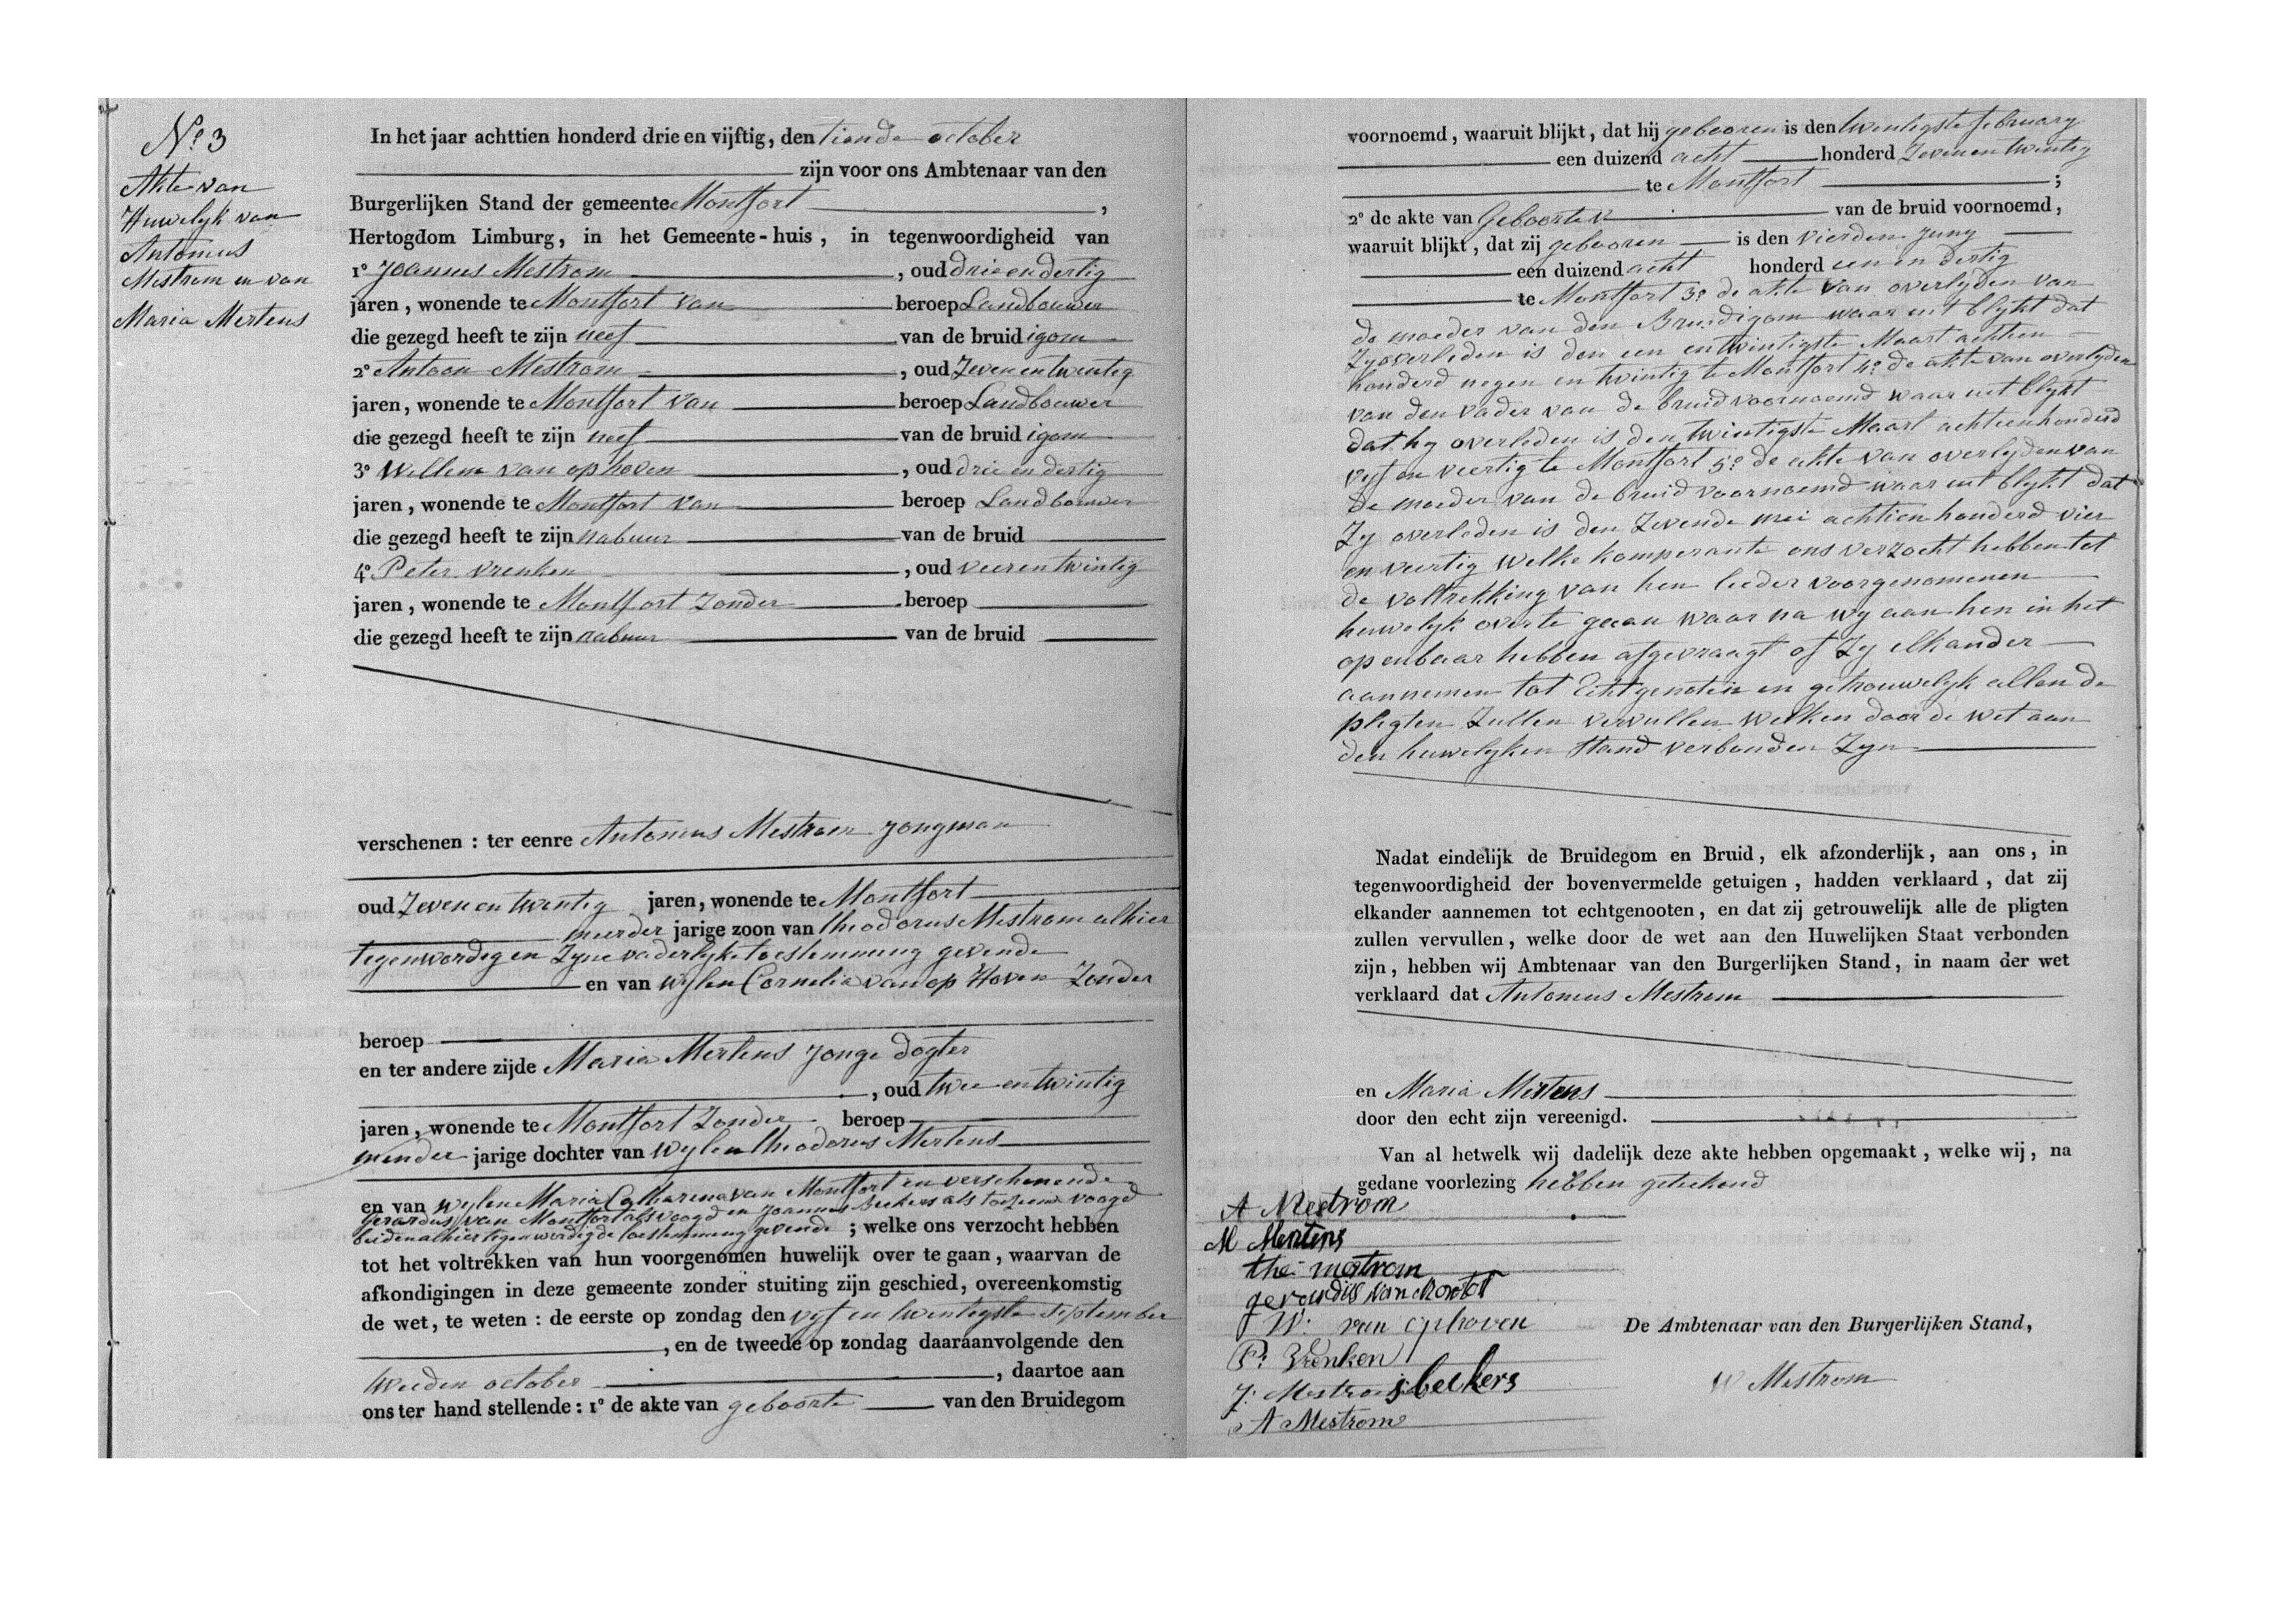 N.º 3
Akte van
Huwelyk van
Antonius
Mestrom en van
Maria Mertens
In het jaar achttien honderd drie en vijftig, den tiende october
zijn voor ons Ambtenaar van den
Burgerlijken Stand der gemeente Montfort ,
Hertogdom Limburg, in het Gemeente-huis, in tegenwoordigheid van
1º Joannes Mestrom , oud drie en dertig
jaren, wonende te Montfort van beroep Landbouwer
die gezegd heeft te zijn neef van de bruid igom
2º Antoon Mestrom , oud Zeven en twentig
jaren, wonende te Montfort van beroep Landbouwer
die gezegd heeft te zijn neef van de bruid igom
3º Willem van ophoven , oud drie en dertig
jaren, wonende te Montfort van beroep Landbouwer
die gezegd heeft te zijn nabuur van de bruid
4º Peter Vrenken , oud veer en twintig
jaren, wonende te Montfort Zonder beroep
die gezegd heeft te zijn nabuur van de bruid
verschenen : ter eenre Antonius Mestrom jongman
oud Zeven en twentig jaren, wonende te Montfort
meerder jarige zoon van theodorus Mestrom alhier
tegenwordig en Zyne vaderlyke toestemming gevende
en van wylen Cornelia van op Hoven Zonder
beroep
en ter andere zijde Maria Mertens jonge dogter
, oud twee en twintig
jaren, wonende te Montfort Zonder beroep
minder jarige dochter van wylen theodorus Mertens
en van wylen Maria Catharina van Montfort en verschenende
Gerardus van Montfort als voogd en Joannes Beckers als toeziend voogd
beiden alhier tegenwerdig de toestemming gevende ; welke ons verzocht hebben
tot het voltrekken van hun voorgenomen huwelijk over te gaan, waarvan de
afkondigingen in deze gemeente zonder stuiting zijn geschied, overeenkomstig
de wet, te weten : de eerste op zondag den vyf en twentigste September
, en de tweede op zondag daaraanvolgende den
tweeden october , daartoe aan
ons ter hand stellende : 1º de akte van geboorte van den Bruidegom
voornoemd, waaruit blijkt, dat hij gebooren is den twentigste february
een duizend acht honderd Zeven en twentig
te Montfort ;
2º de akte van Geboorte van de bruid voornoemd,
waaruit blijkt, dat zij gebooren is den vierden juny
een duizend acht honderd een en dertig
te Montfort 3º de akte van overlyden van
de moeder van den Bruidigom waar uit blykt dat
Zy overleden is den een en twintigste Maart achtien
honderd negen en twintig te Montfort 4º de akte van overlyden
van den vader van de bruid voornoemd waar uit blykt
dat hy overleden is den twintigste Maart achtienhonderd
vyf en veertig te Montfort 5º de akte van overlyden van
de moeder van de bruid voornoemd waar uit blykt dat
Zy overleden is den Zevende mei achtien honderd vier
en veertig welke komperante ons verzocht hebben tot
de voltrekking van hen lieder voorgenomenen
huwelyk over te gaan waar na wy aan hen in het
openbaar hebben afgevraagt of Zy elkander
aannemen tot Echtgenoten en getrouwelyk allen de
pligten Zullen vervullen welken door de wet aan
den huwelyken Stand verbonden Zyn
Nadat eindelijk de Bruidegom en Bruid, elk afzonderlijk, aan ons, in
tegenwoordigheid der bovenvermelde getuigen, hadden verklaard, dat zij
elkander aannemen tot echtgenooten, en dat zij getrouwelijk alle de pligten
zullen vervullen, welke door de wet aan den Huwelijken Staat verbonden
zijn, hebben wij Ambtenaar van den Burgerlijken Stand, in naam der wet
verklaard dat Antonius Mestrom
en Maria Mertens
door den echt zijn vereenigd.
Van al hetwelk wij dadelijk deze akte hebben opgemaakt, welke wij, na
gedane voorlezing hebben geteekend
A Mestrom
M Mertens
the: mestrom
gerardus van
W: van ophoven
De Ambtenaar van den Burgerlijken Stand,
P: Vrenken
J: Mestrom j beckers
W Mestrom
A Mestrom